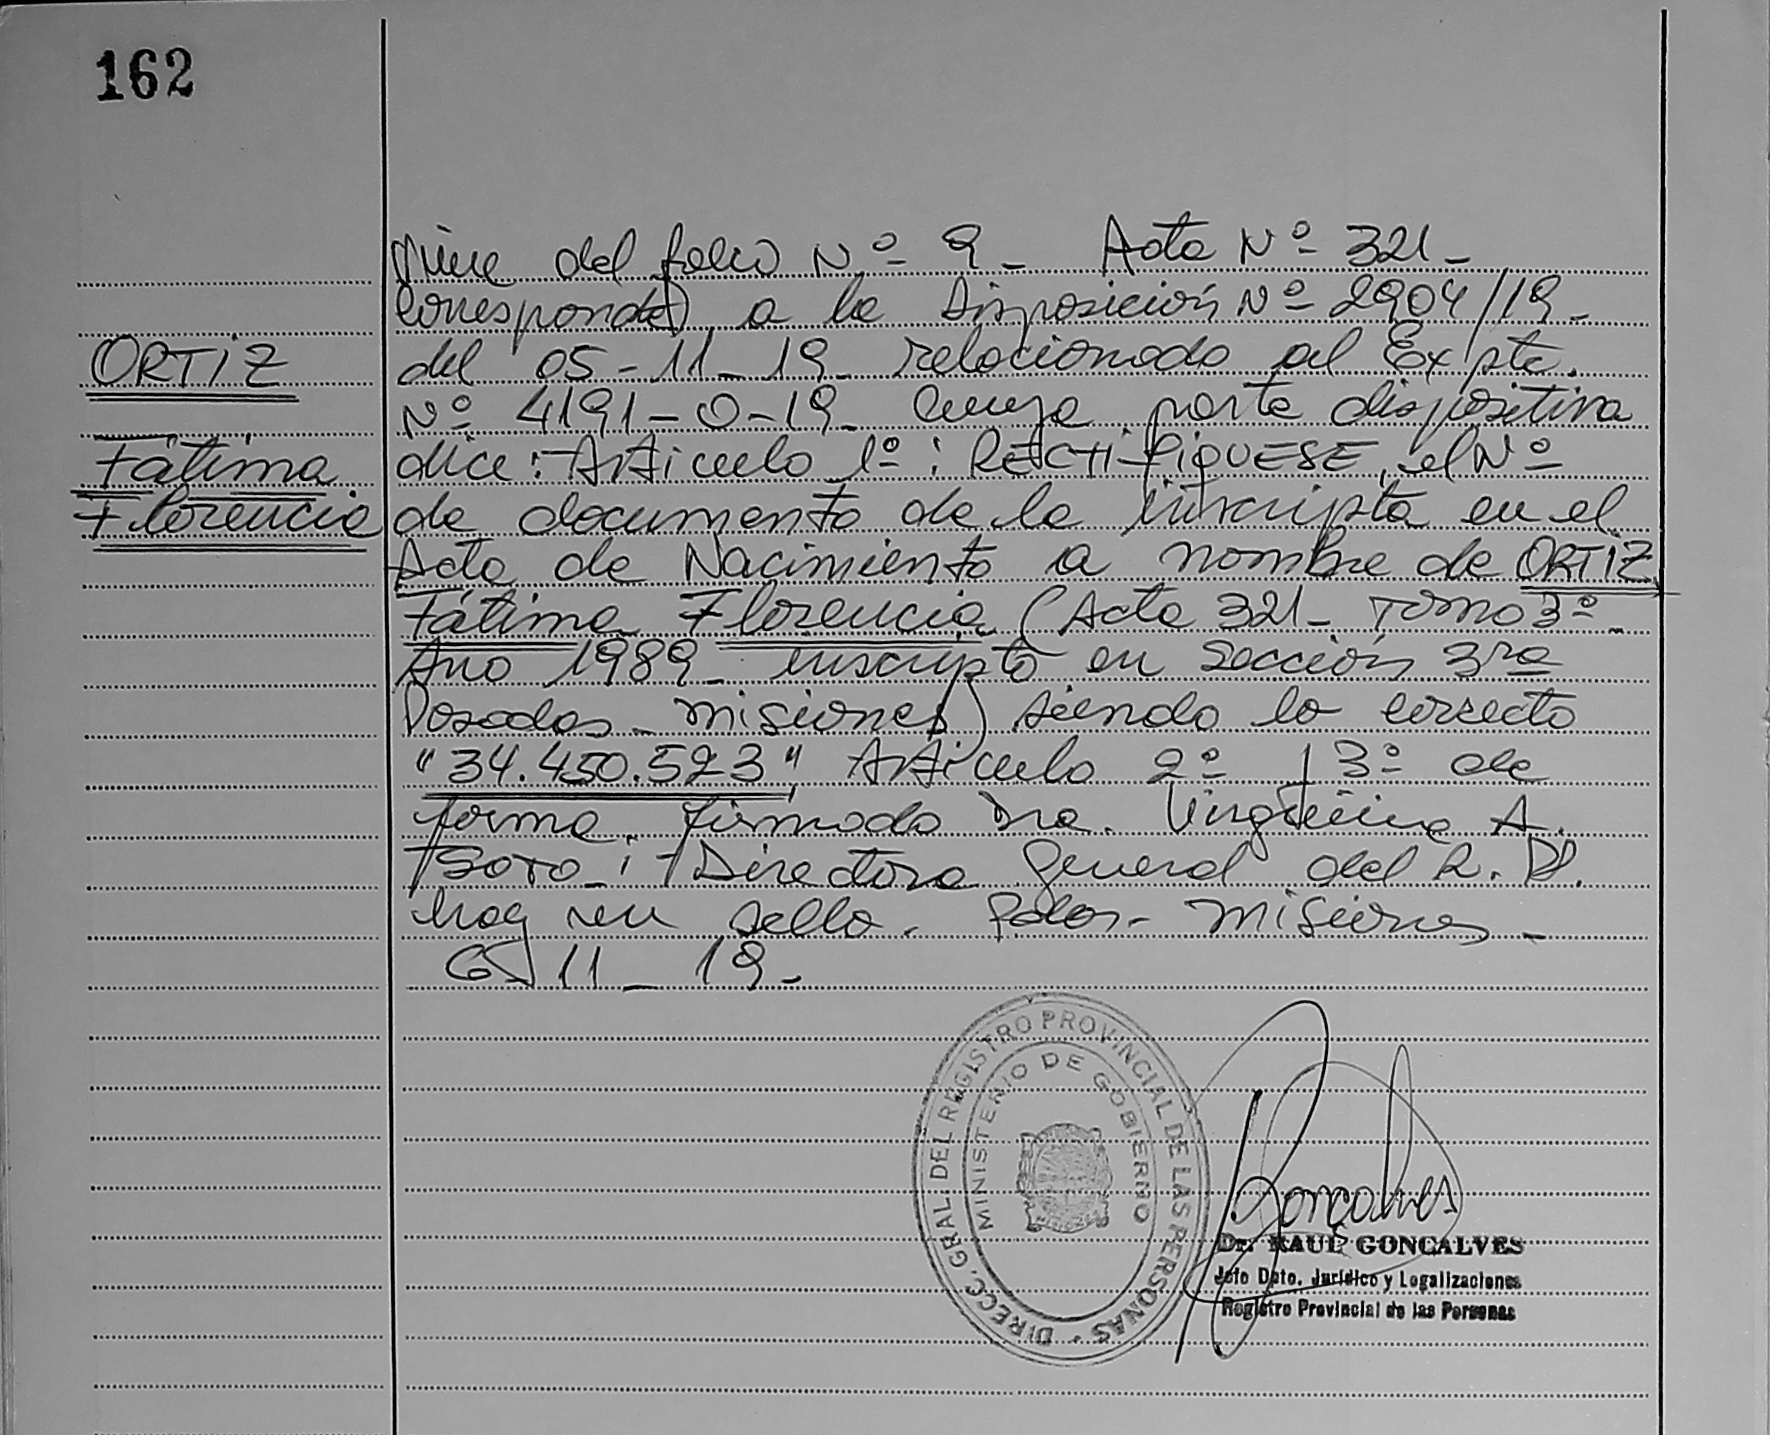 162
Viene del folio Nº 9 - Acta Nº 321 -
Corresponde a la Disposición Nº 2904/19 -
ORTIZ
del 05-11-19 relacionado al Expte.
Nº 4191-O-19 - cuya parte dispositiva
Fátima
dice: Artículo 1º: RECTIFIQUESE, el Nº
Florencia
de documento de la inscripta en el
Acta de Nacimiento a nombre de ORTIZ
Fátima Florencia (Acta 321 - Tomo 3º -
Año 1989 - inscripto en Sección 3ra
Posadas - Misiones) siendo lo correcto
"34.450.523" Artículo 2º 3º de
forma. Firmado Dra. A.
Soto - Directora General del R. P.
hay un sello. Pdas - Misiones -
11 - 19 -
DIRECC. GRAL. DEL REGISTRO PROVINCIAL DE LAS PERSONAS
MINISTERIO DE GOBIERNO
Gonçalves
Dr. RAUL GONÇALVES
Jefe Dpto. Jurídico y Legalizaciones
Registro Provincial de las Personas